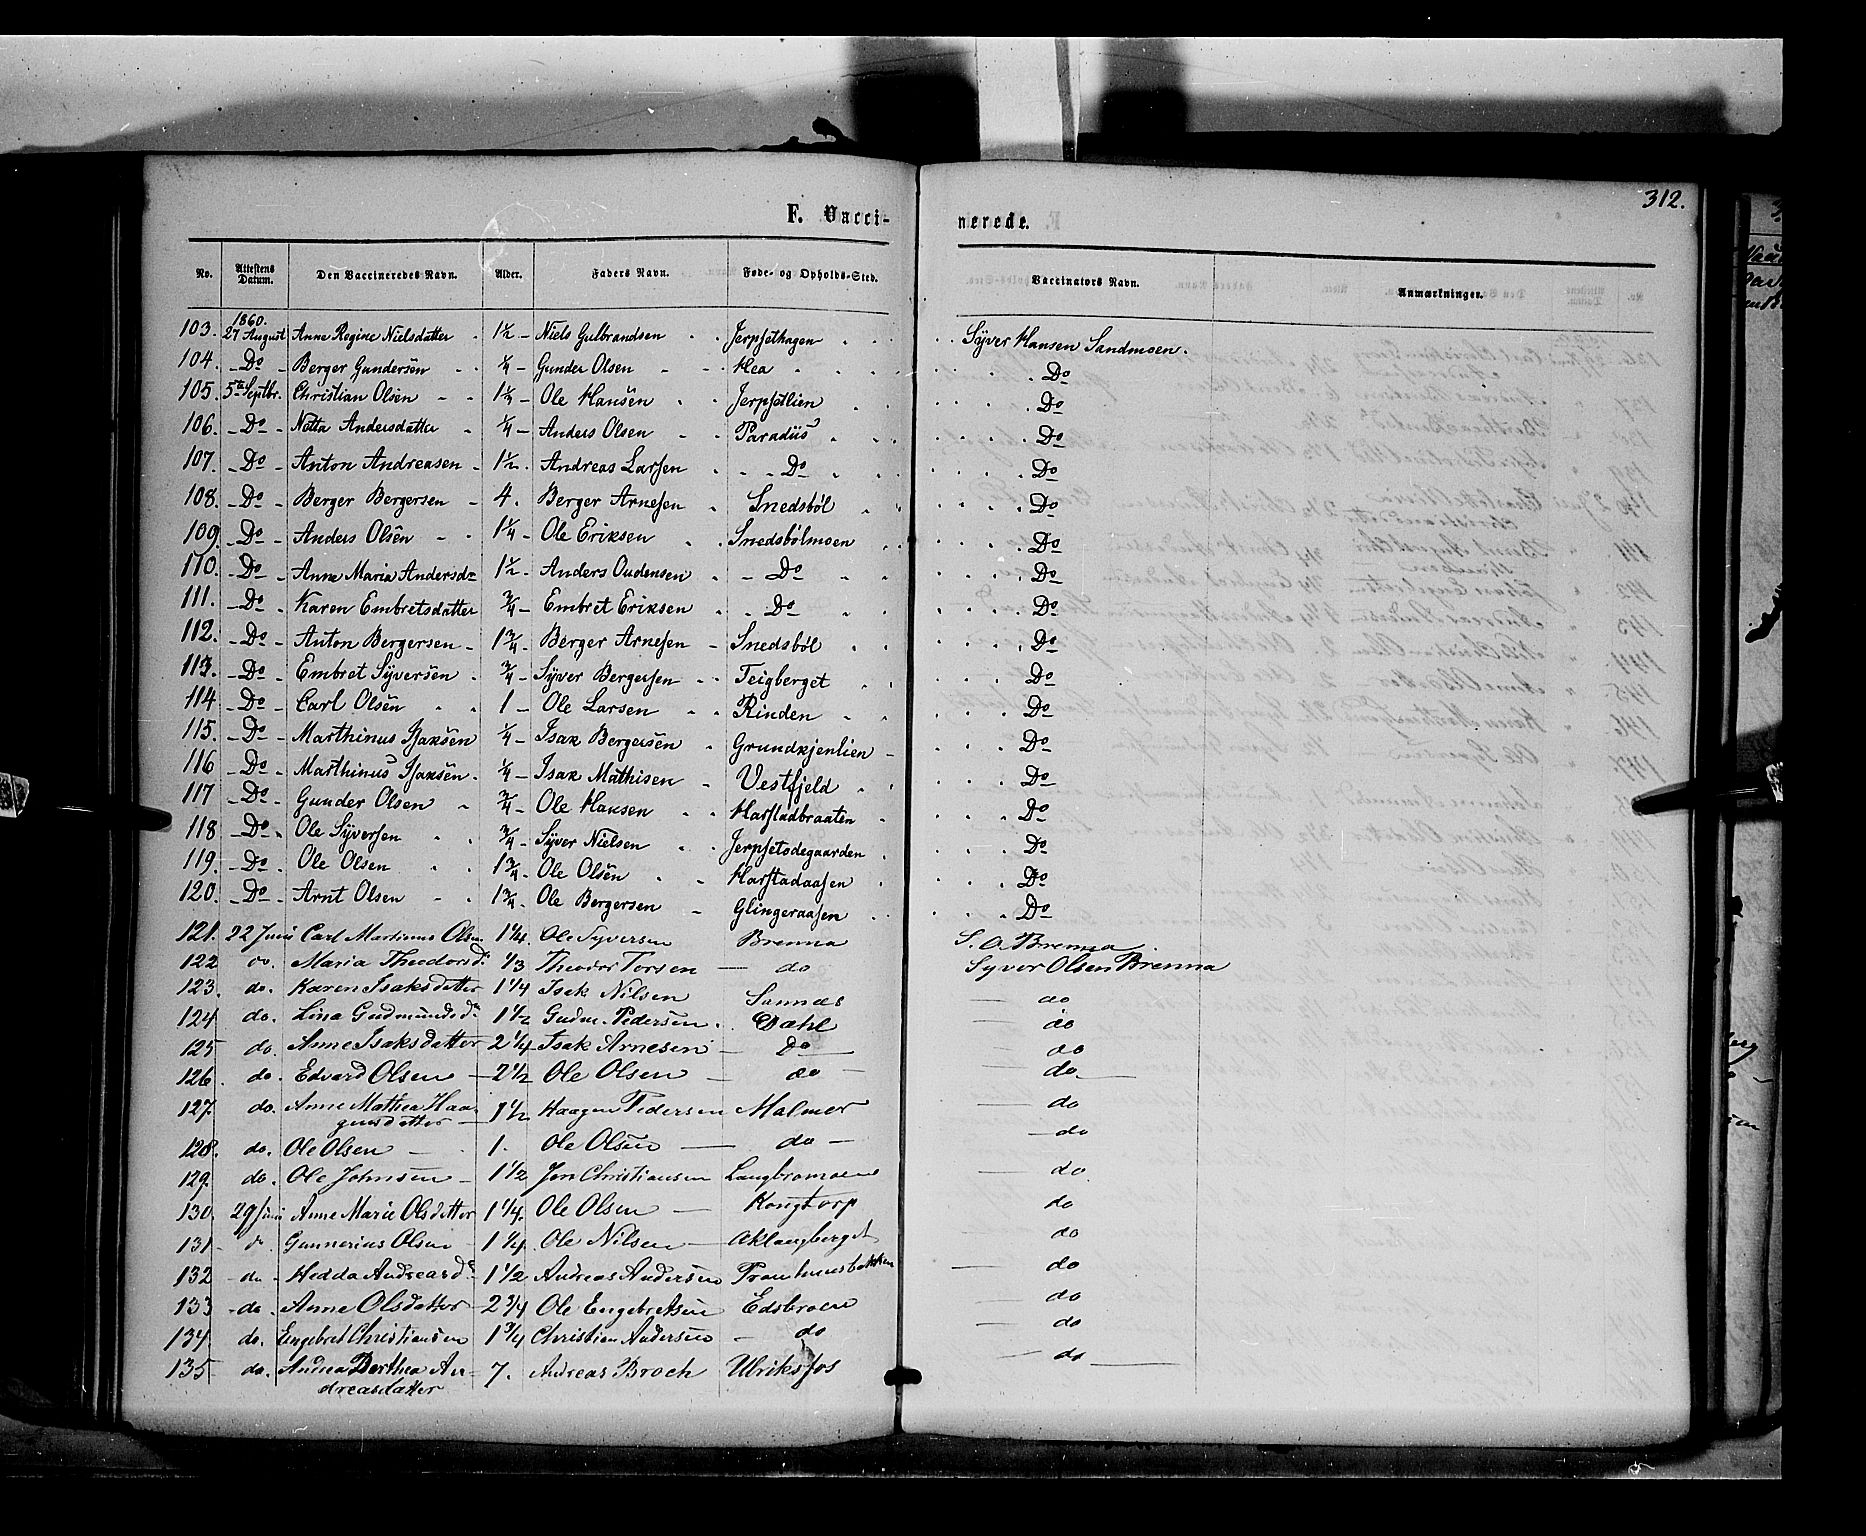 312.
F. Vacci- nerede.
No. Attestens Datum. Den Vaccineredes Navn. Alder. Faders Navn. Føde- og Opholds-Sted. Vaccinators Navn. Anmærkninger.
1860.
103. 27 August Anne Regine Nielsdatter 1½ Niels Gulbrandsen Jerpsethagen Syver Hansen Sandmoen.
104. Do Berger Gundersen ¼ Gunder Olsen Hea Do
105. 5te Septbr. Christian Olsen 1¼ Ole Hansen Jerpsetlien Do
106. Do Netta Andersdatter ¼ Anders Olsen Paradiis Do
107. Do Anton Andreasen 1½ Andreas Larsen Do Do
108. Do Berger Bergersen 4. Berger Arnesen Snedsbøl Do
109. Do Anders Olsen 1¼ Ole Eriksen Snedsbølmoen Do
110. Do Anne Maria Andersdr 1½ Anders Oudensen Do Do
111. Do Karen Embretsdatter ¾ Embret Eriksen Do Do
112. Do Anton Bergersen 1¾ Berger Arnesen Snedsbøl Do
113. Do Embret Syversen ¾ Syver Bergersen Teigberget Do
114 Do Carl Olsen 1 Ole Larsen Rinden Do
115. Do Marthinus Isaksen ¼ Isak Bergersen Grundkjenlien Do
116 Do Marthinus Isaksen ¼ Isak Mathisen Vestfjeld Do
117 Do Gunder Olsen ¾ Ole Hansen Harstadbraaten Do
118 Do Ole Syversen ¾ Syver Nielsen Jerpsetodegaarden Do
119. Do Ole Olsen 1¾ Ole Olsen Harstadaasen Do
120. Do Arnt Olsen 1¾ Ole Bergersen Glingeraasen Do
121. 22 Juni Carl Martinus Olsen 1¼ Ole Syversen Brenna S. O. Brenna
122 do. Maria Theodorsd. ⅓ Theodor Torsen do Syver Olsen Brenna
123. do. Karen Isaksdatter 1¼ Isak Nilsen Sannæs do
124 do. Lina Gudmundsd. 1½ Gudm. Pedersen Dæhl do
125 do. Anne Isaksdatter 2¼ Isak Arnesen Do do
126. do. Edvard Olsen 2½ Ole Olsen do do
127. do. Anne Mathea Haa- 1½ Haagen Pedersen Malmer do
gensdatter
128. do. Ole Olsen 1. Ole Olsen do do
129. do. Ole Johnsen 1½ Jon Christiansen Langbromoen do
130. 29 Juni Anne Marie Olsdatter 1¼. Ole Olsen Kongtorp do
131 d Gunnerius Olsen 1¼ Ole Nilsen Aklangberget do
132 do Hedda Andreasd. 1½ Andreas Andersen do
133 do. Anne Olsdatter 2¾ Ole Engebretsen Edsbroen do
134. do. Engebret Christiansen 1¾ Christian Andersen do do
135 do. Andrea Berthea An- 7. Andreas Broch Ulriksfos do
dreasdatter